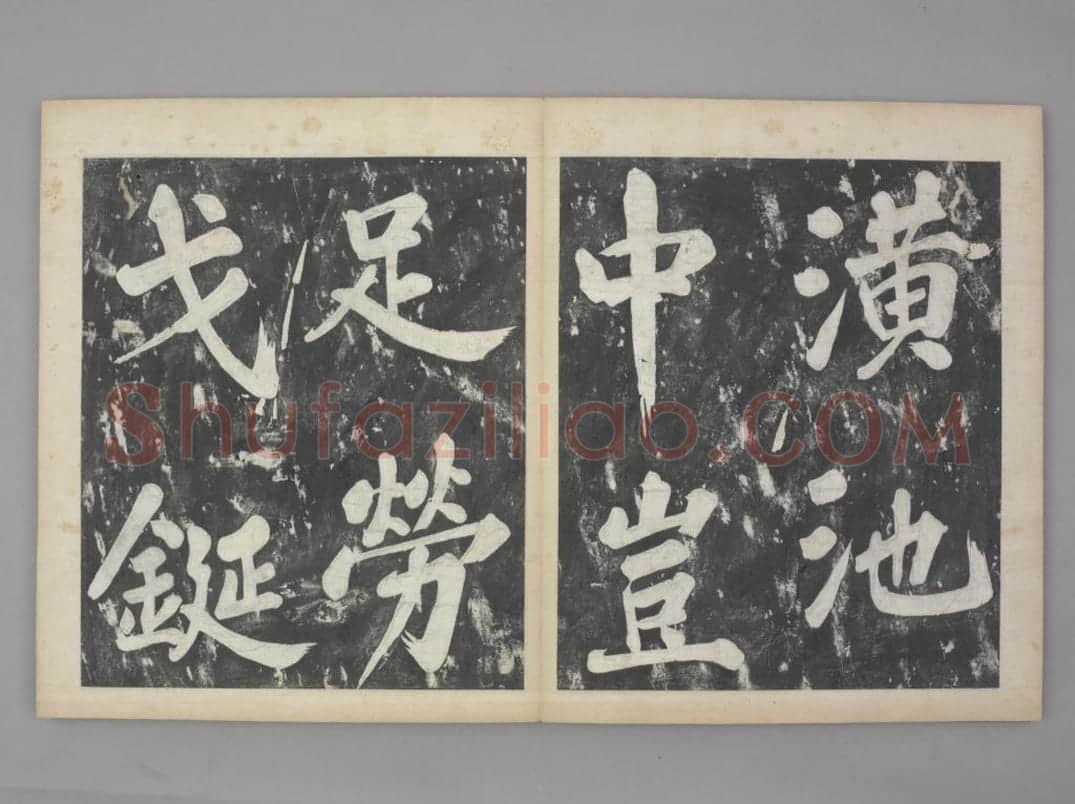 潢池
中豈
足勞
戈鋋
Shufaziliao.COM